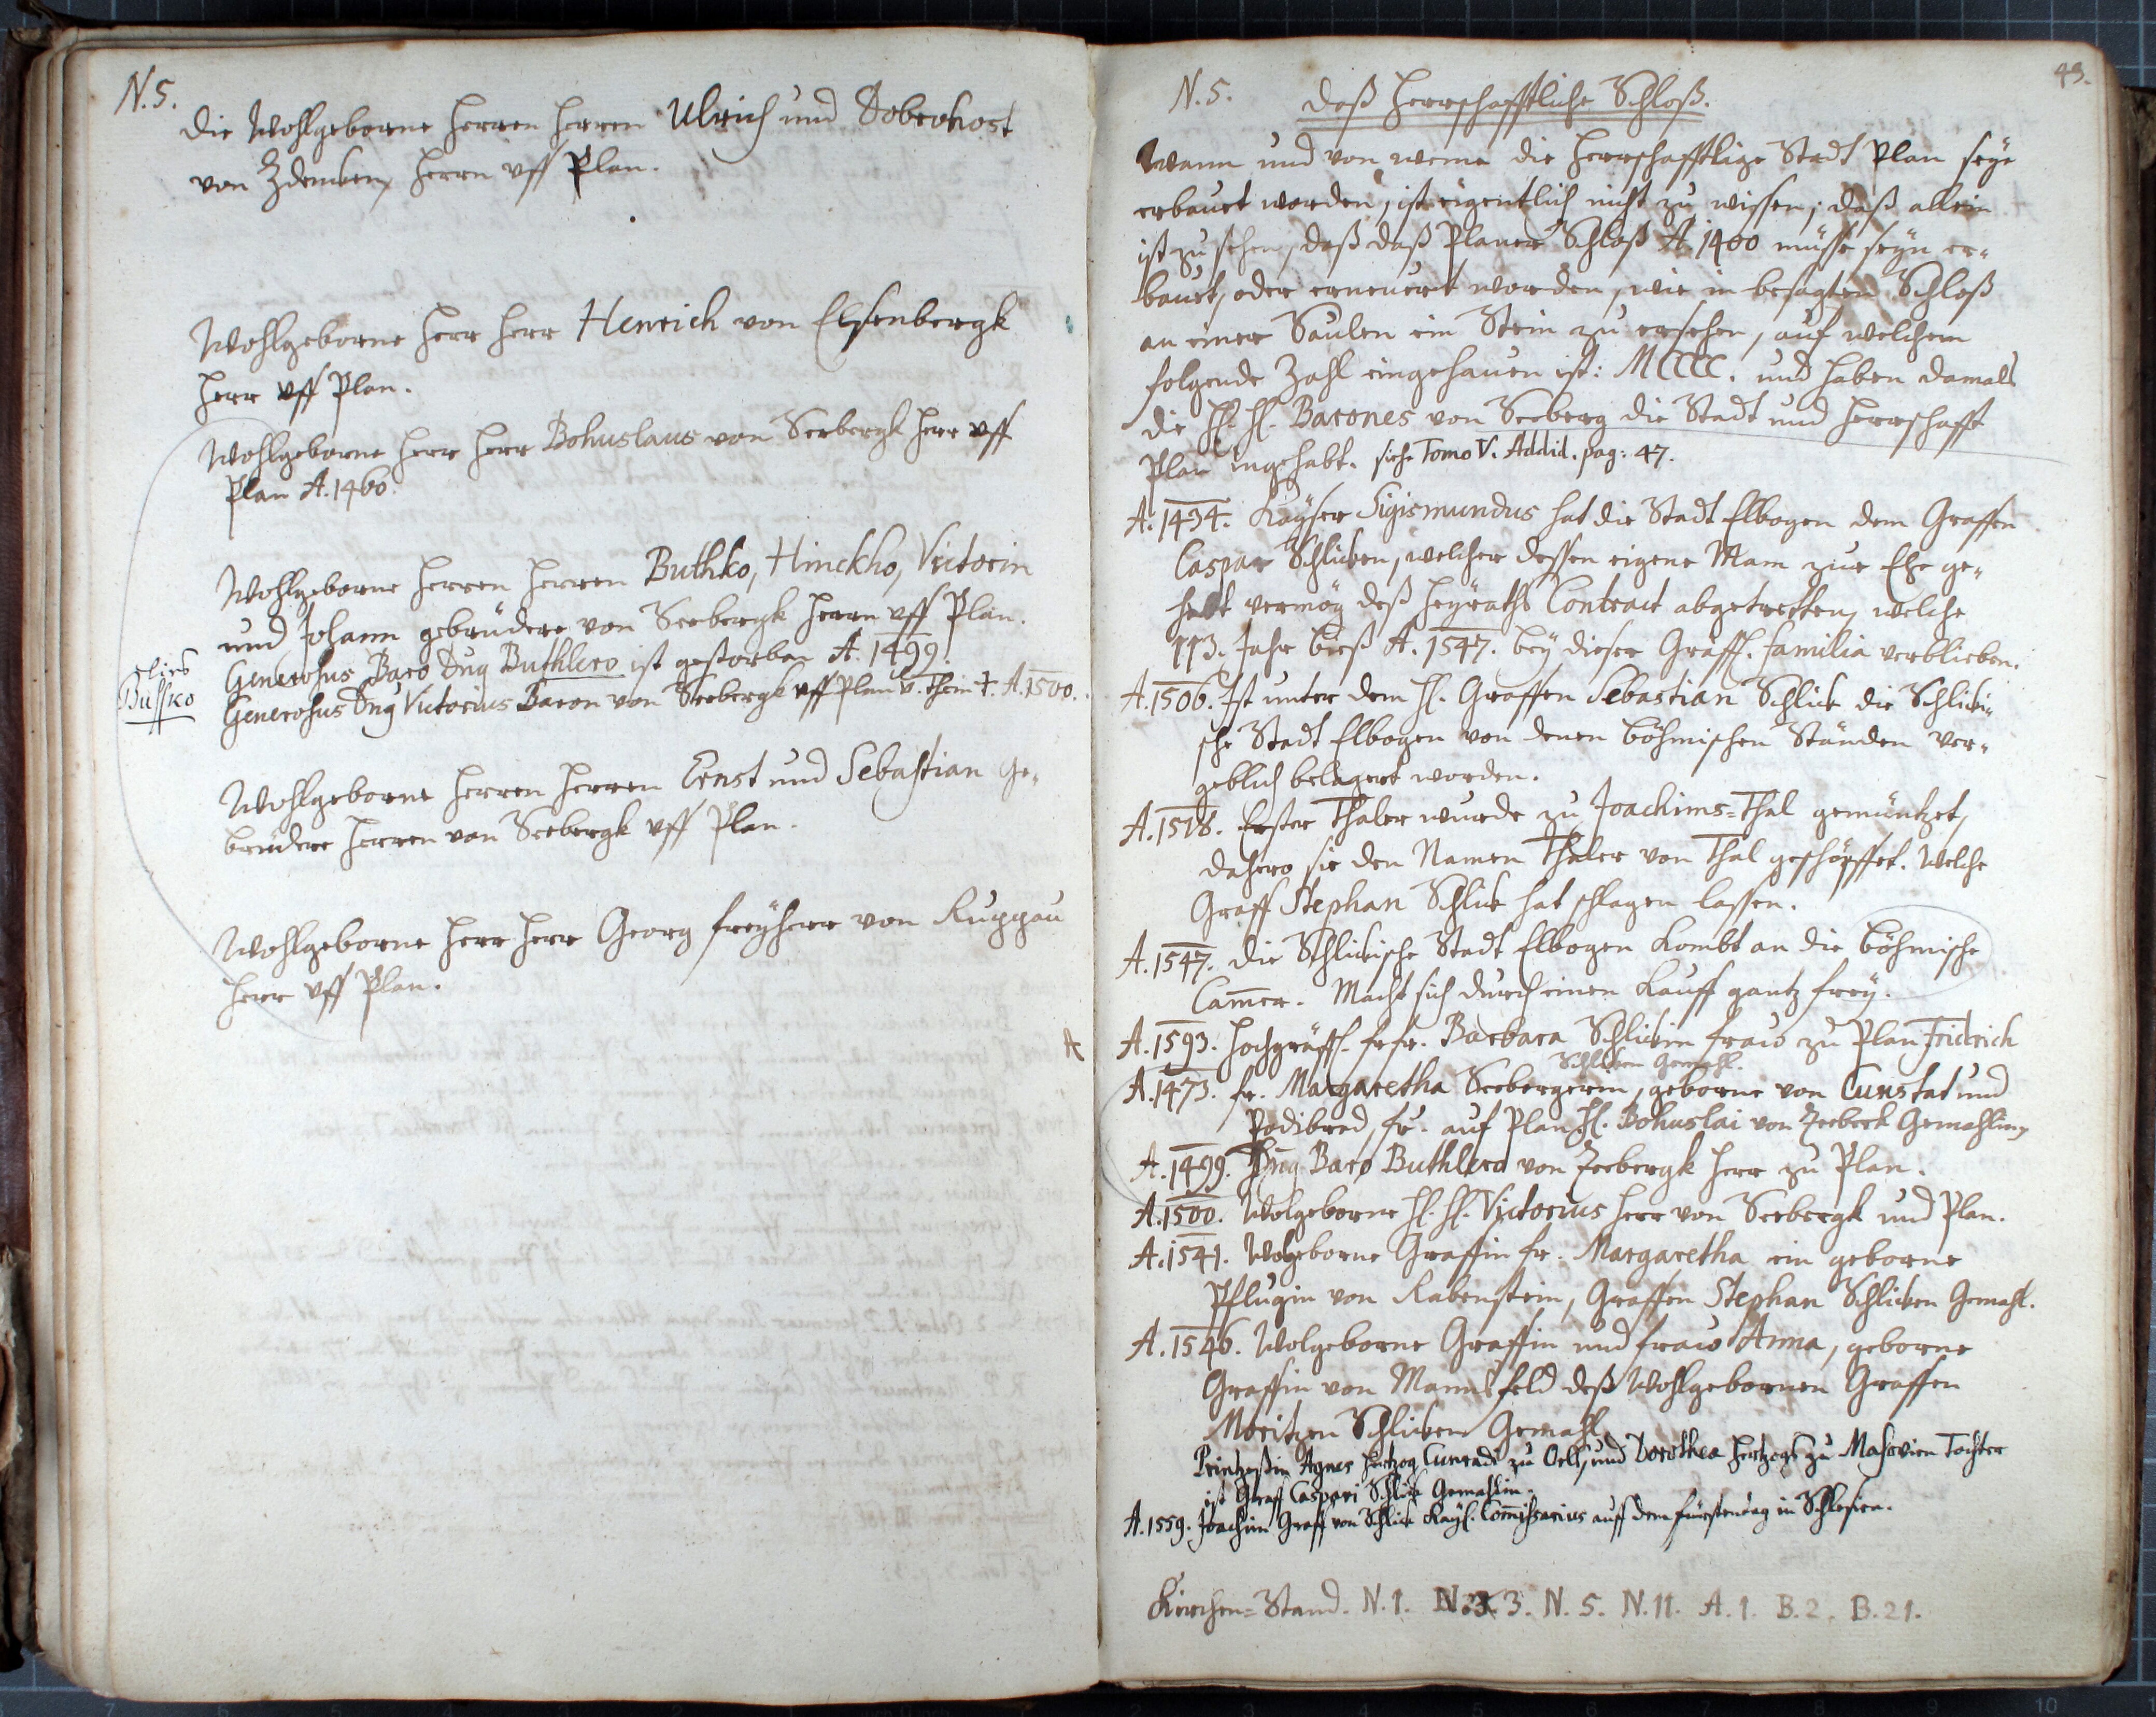 N. 5.
Die Wohlgeborne Herren Herren Ulrich und Dobrohost
von Zdenken, Herrn vff Plan.
Wohlgeborne Herr Herr Henrich von Elsenbergk
Herr vff Plan.
Wohlgeborne Herr Herr Bohuslaus von Seebergk Herr vff
Plan A. 1460.
Wohlgeborne Herren Herren Buthko, Hinckho, Victorin
und Johann gebrüdere von Seebergk Herrn vff Plan.
Generosus Baro Dnq Buthlero ist gestorben A. 1499.
Generosus Dnq Victorius Baron von Seebergk vff Plan v. Thein †. A. 1500.
Bussko
Wohlgeborne Herren Herren Ernst und Sebastian ge-
brüdere Herren von Seebergk vff Plan.
Wohlgeborne Herr Herr Georg Freÿherr von Ruppau
Herr vff Plan.
A
43.
N. 5. Daß Herrschafftliche Schloß.
Wann und von weme die Herrschafftlige Stadt Plan seÿe
erbauet worden, ist eigentlich nicht zu wissen; daß allein
ist zu sehen, daß daß Planer Schloß A. 1400 müsse seÿn er-
bauet, oder erneuert worden, wie in besagten Schloß
an einer Saulen ein Stein zu ersehen, auf welchem
folgende Zahl eingehauen ist: MCCCC. und haben damals
die H. H. Barones von Seeberg die Stadt und Herrschafft
Plan ingehabt. siehe Tomo V. Addid. pag: 47.
A. 1434. Kaÿser Sigismundus hat die Stadt Elbogen dem Graffen
Caspar Schlicken, welcher dessen eigene Mam zur Ehe ge-
habt vermög deß Heÿraths Contract abgetretten, welche
113. Jahr bieß A. 1547. beÿ dieser Gräffl. Familia verblieben.
A. 1506. Ist unter dem H. Graffen Sebastian Schlick die Schlicki-
sche Stadt Elbogen von denen Böhmischen Ständen ver-
geblich belagert worden.
A. 1518. Erster Thaler wurde zu Joachims-Thal gemüntzet,
dahero sie den Namen Thaler von Thal geschöpffet. Welche
Graff Stephan Schlick hat schlagen lassen.
A. 1547. Die Schlickische Stadt Elbogen kombt an die Böhmische
Cam̄er. Macht sich durch einen Kauff gantz freÿ.
A. 1593. Hochgräffl. fr. fr. Barbara Schlickin fraw zu Plan Fridrich
Schlicken Gemahl.
A. 1473. fr. Margaretha Seebergerin, geborne von Cunstat und
Podibrad, fr. auf Plan H. Bohuslai von Zeeberk Gemahlin,
A. 1499. Dnq Baro Buthlero von Zeebergk Herr zu Plan.
A. 1500. Wolgeborne H. H. Victorius Herr von Seebergk und Plan.
A. 1541. Wolgeborne Graffin fr. Margaretha ein geborne
Pflugin von Rabenstein, Graffen Stephan Schlicken Gemahl.
A. 1546. Wolgeborne Graffin und fraw Anna, geborne
Graffin von Mannsfeld deß Wohlgebornen Graffen
Moritzen Schlicken Gemahl
Printzeßin Agnes Hertzog Cunradi zu Oels, und Dorothea Hertzogs zu Masovien Tochter
ist Graff Caspari Schlick Gemahlin.
A. 1559. Joachim Graff von Schlick Kaÿl. Com̄issarius auff dem Fürstentag in Schlesien.
Kirchen-Stand. N. 1. N. 3. N. 5. N. 11. A. 1. B. 2. B. 21.